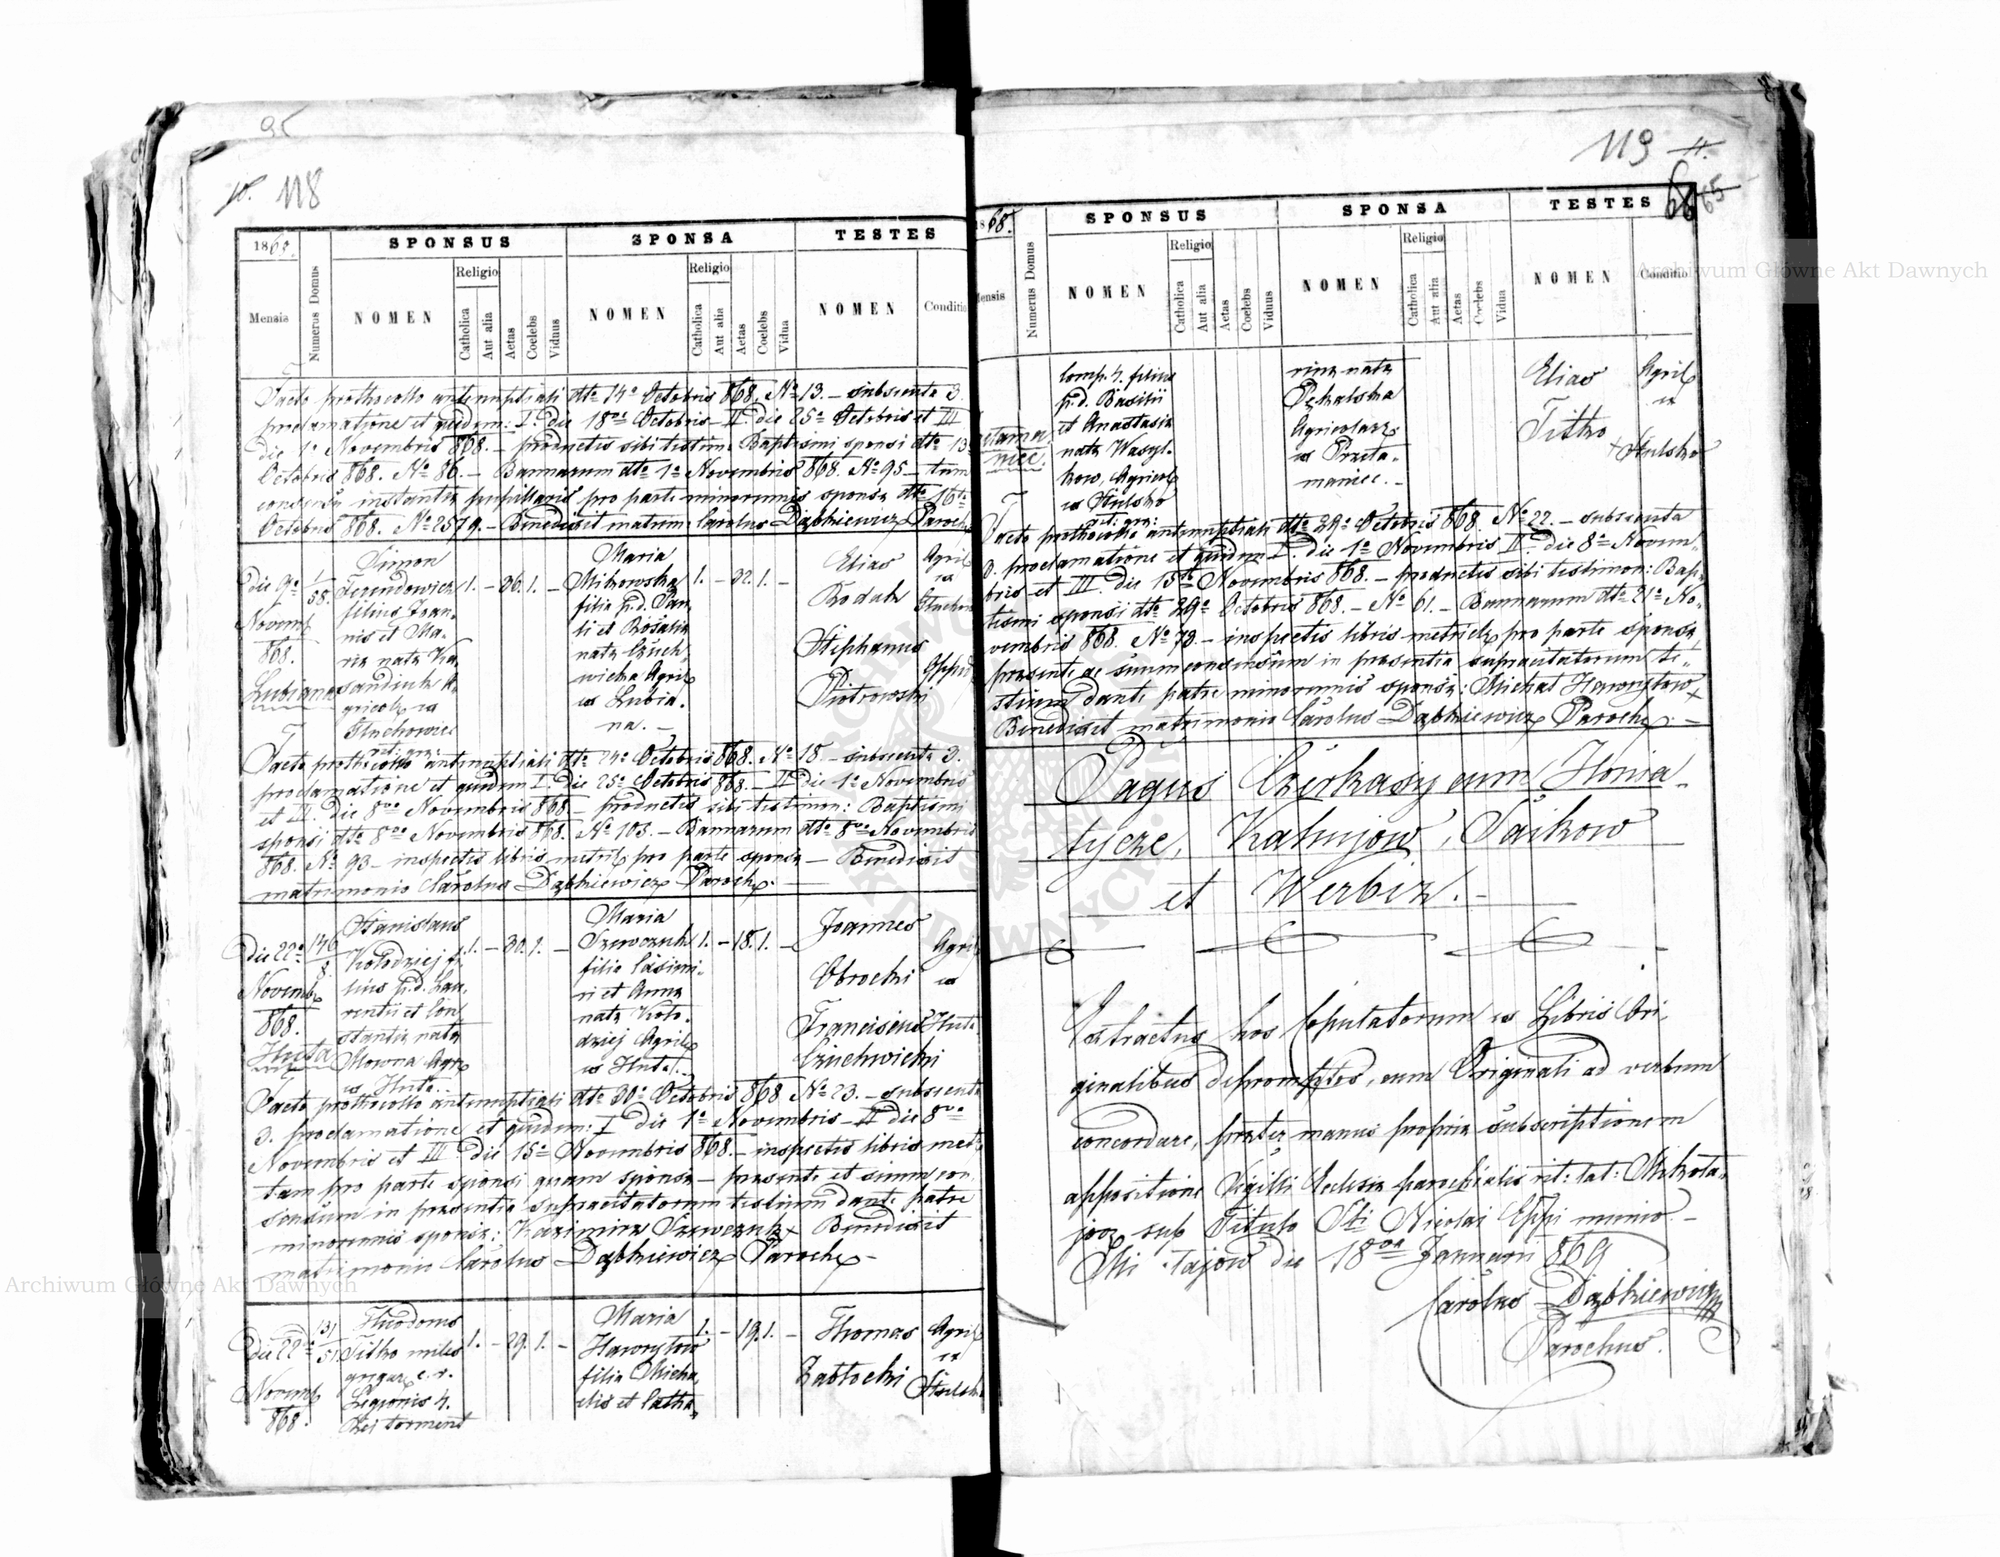 95
118
1868.
SPONSUS
SPONSA
TESTES
Mensis
Numerus Domus
NOMEN
Religio
Catholica
Aut alia
Aetas
Coelebs
Viduus
NOMEN
Religio
Catholica
Aut alia
Aetas
Coelebs
Vidua
NOMEN
Conditio
Facto prothocollo antenuptiali dtto 14a Octobris 868, No 13. – subsecuta 3.
proclamatione et quidem: I. die 18va Octobris – II. die 25a Octobris et III
die 1a Novembris 868. – productis sibi testim: Baptismi sponsi dtto 13a
Octobris 868. No 86. – Bannarum dtto 1a Novembris 868. No 95 – tum
consensu instantiæ pupillaris pro parte minorennis sponsæ dtto 16ta
Octobris 868. No 2579. – Benedixit matrim: Carolus Dąbkiewicz Paroch
die 9a
Novemb
868.
Lubiana
1/58.
Simon
filius Joan,
nis et Ma,
ria nata
gricolæ ex
Stuchowiec
rit: gr:
1. – 36. 1. –
Maria
Mikowska
filia p.d. Pau
li et Rosalia
nata Czuch,
wicka Agril
ex Lubia,
na. –
1. – 32. 1. –
Elias
Kodak
Stephanus
Piotrowski
Agril
ex
Oppid
Facto prothocollo antenuptiali dtto 24a Octobris 868. No 18. – subsecuta 3.
proclamatione et quidem I. die 25a Octobris 868. – II die 1a Novembris
et III. die 8va Novembris 868. – productis sibi testimon: Baptismi
sponsi dtto 8va Novembris 868. No 103. – Bannarum dtto 8va Novembris
868. No 93 – inspectis libris metril pro parte sponsæ – Benedixit
matrimonio Carolus Dąbkiewicz Paroch. –
die 22a
Novemb
868.
Huta
146/8
Stanislaus
Kołodziej fi,
lius p.d. Lau,
rentii et Con
stantiæ nata
Mowra Agr
ex Huta. –
1. – 30. 1. –
Maria
Szewczuk
filia Casimi,
ri et Anna
nata Koło,
dziej Agril
ex Huta. –
1. – 18. 1. –
Joannes
Obrocki
Franciscus
Czuchwicki
Agril
ex
Huta
Facto prothocollo antenuptiali dtto 30a Octobris 868 No 23. – subsecuta
3. proclamatione et quidem: I die 1a Novembris – II die 8va
Novembris et III die 15a Novembris 868. – inspectis libris met
tam pro parte sponsi quam sponsæ – præsente et suum con
sensum in præsentia supracitatorum testium dante patre
minorennis sponsæ: Kazimierz Szewczuk + Benedixit
matrimonio Carolus Dąbkiewicz Paroch –
die 22a
Novemb
868.
131/51
Theodorus
Titko miles
gregar. c. r.
Legionis 4.
torment
1. – 29. 1. –
Maria
Hawryłow
filia Micha,
elis et Catha,
1. – 19. 1. –
Thomas
Zabłocki
Agril
ex
Stulsko
119
11.
66
65
1868.
SPONSUS
SPONSA
TESTES
Mensis
Numerus Domus
NOMEN
Religio
Catholica
Aut alia
Aetas
Coelebs
Viduus
NOMEN
Religio
Catholica
Aut alia
Aetas
Coelebs
Vidua
NOMEN
Conditio
niec.
Comp. 4. filius
p.d. Basilii
et Anastasia
nata Wasyl,
kow, Agricol
ex Stulsko
rit: gr:
rina nata
Pękalska
Agricolarz
ex Przeta,
maniec. –
Elias
Titko
Agril
ex
+ Stulsko
Facto prothocollo antenuptiali dtto 29a Octobris 868. No 22. – subsecuta
3. proclamatione et quidem I. die 1a Novembris II. die 8va Novem,
bris et III. die 15ta Novembris 868. – productis sibi testimon: Bap,
tismi sponsi dtto 29a Octobris 868. – No 61. – Bannarum dtto 21a No,
vembris 868. No 78. – inspectis libris metrick pro parte sponsæ
præsente ac suum consensum in præsentia supracitatorum te,
stium dante patre minorennis sponsæ: Michał Hawryłow +
Benedixit matrimonio Carolus Dąbkiewicz Paroch. –
Pagus Czerkasy cum Honia,
tycze, Kahujow, Saikow
et Werbiz. –
Extractus hos Coputatorum ex Libris Ori,
ginalibus depromptos, cum Originali ad verbum
concordare, præter manus propriæ subscriptionem
appositione Sigilli Ecclesiæ parochialis rit: lat: Mikoła,
jow sub Titulo Sti Nicolai Eppi munio. –
Mikołajow die 18va Januarii 869
Carolus Dąbkiewicz
Parochus.
Archiwum Główne Akt Dawnych
Archiwum Główne Akt Dawnych